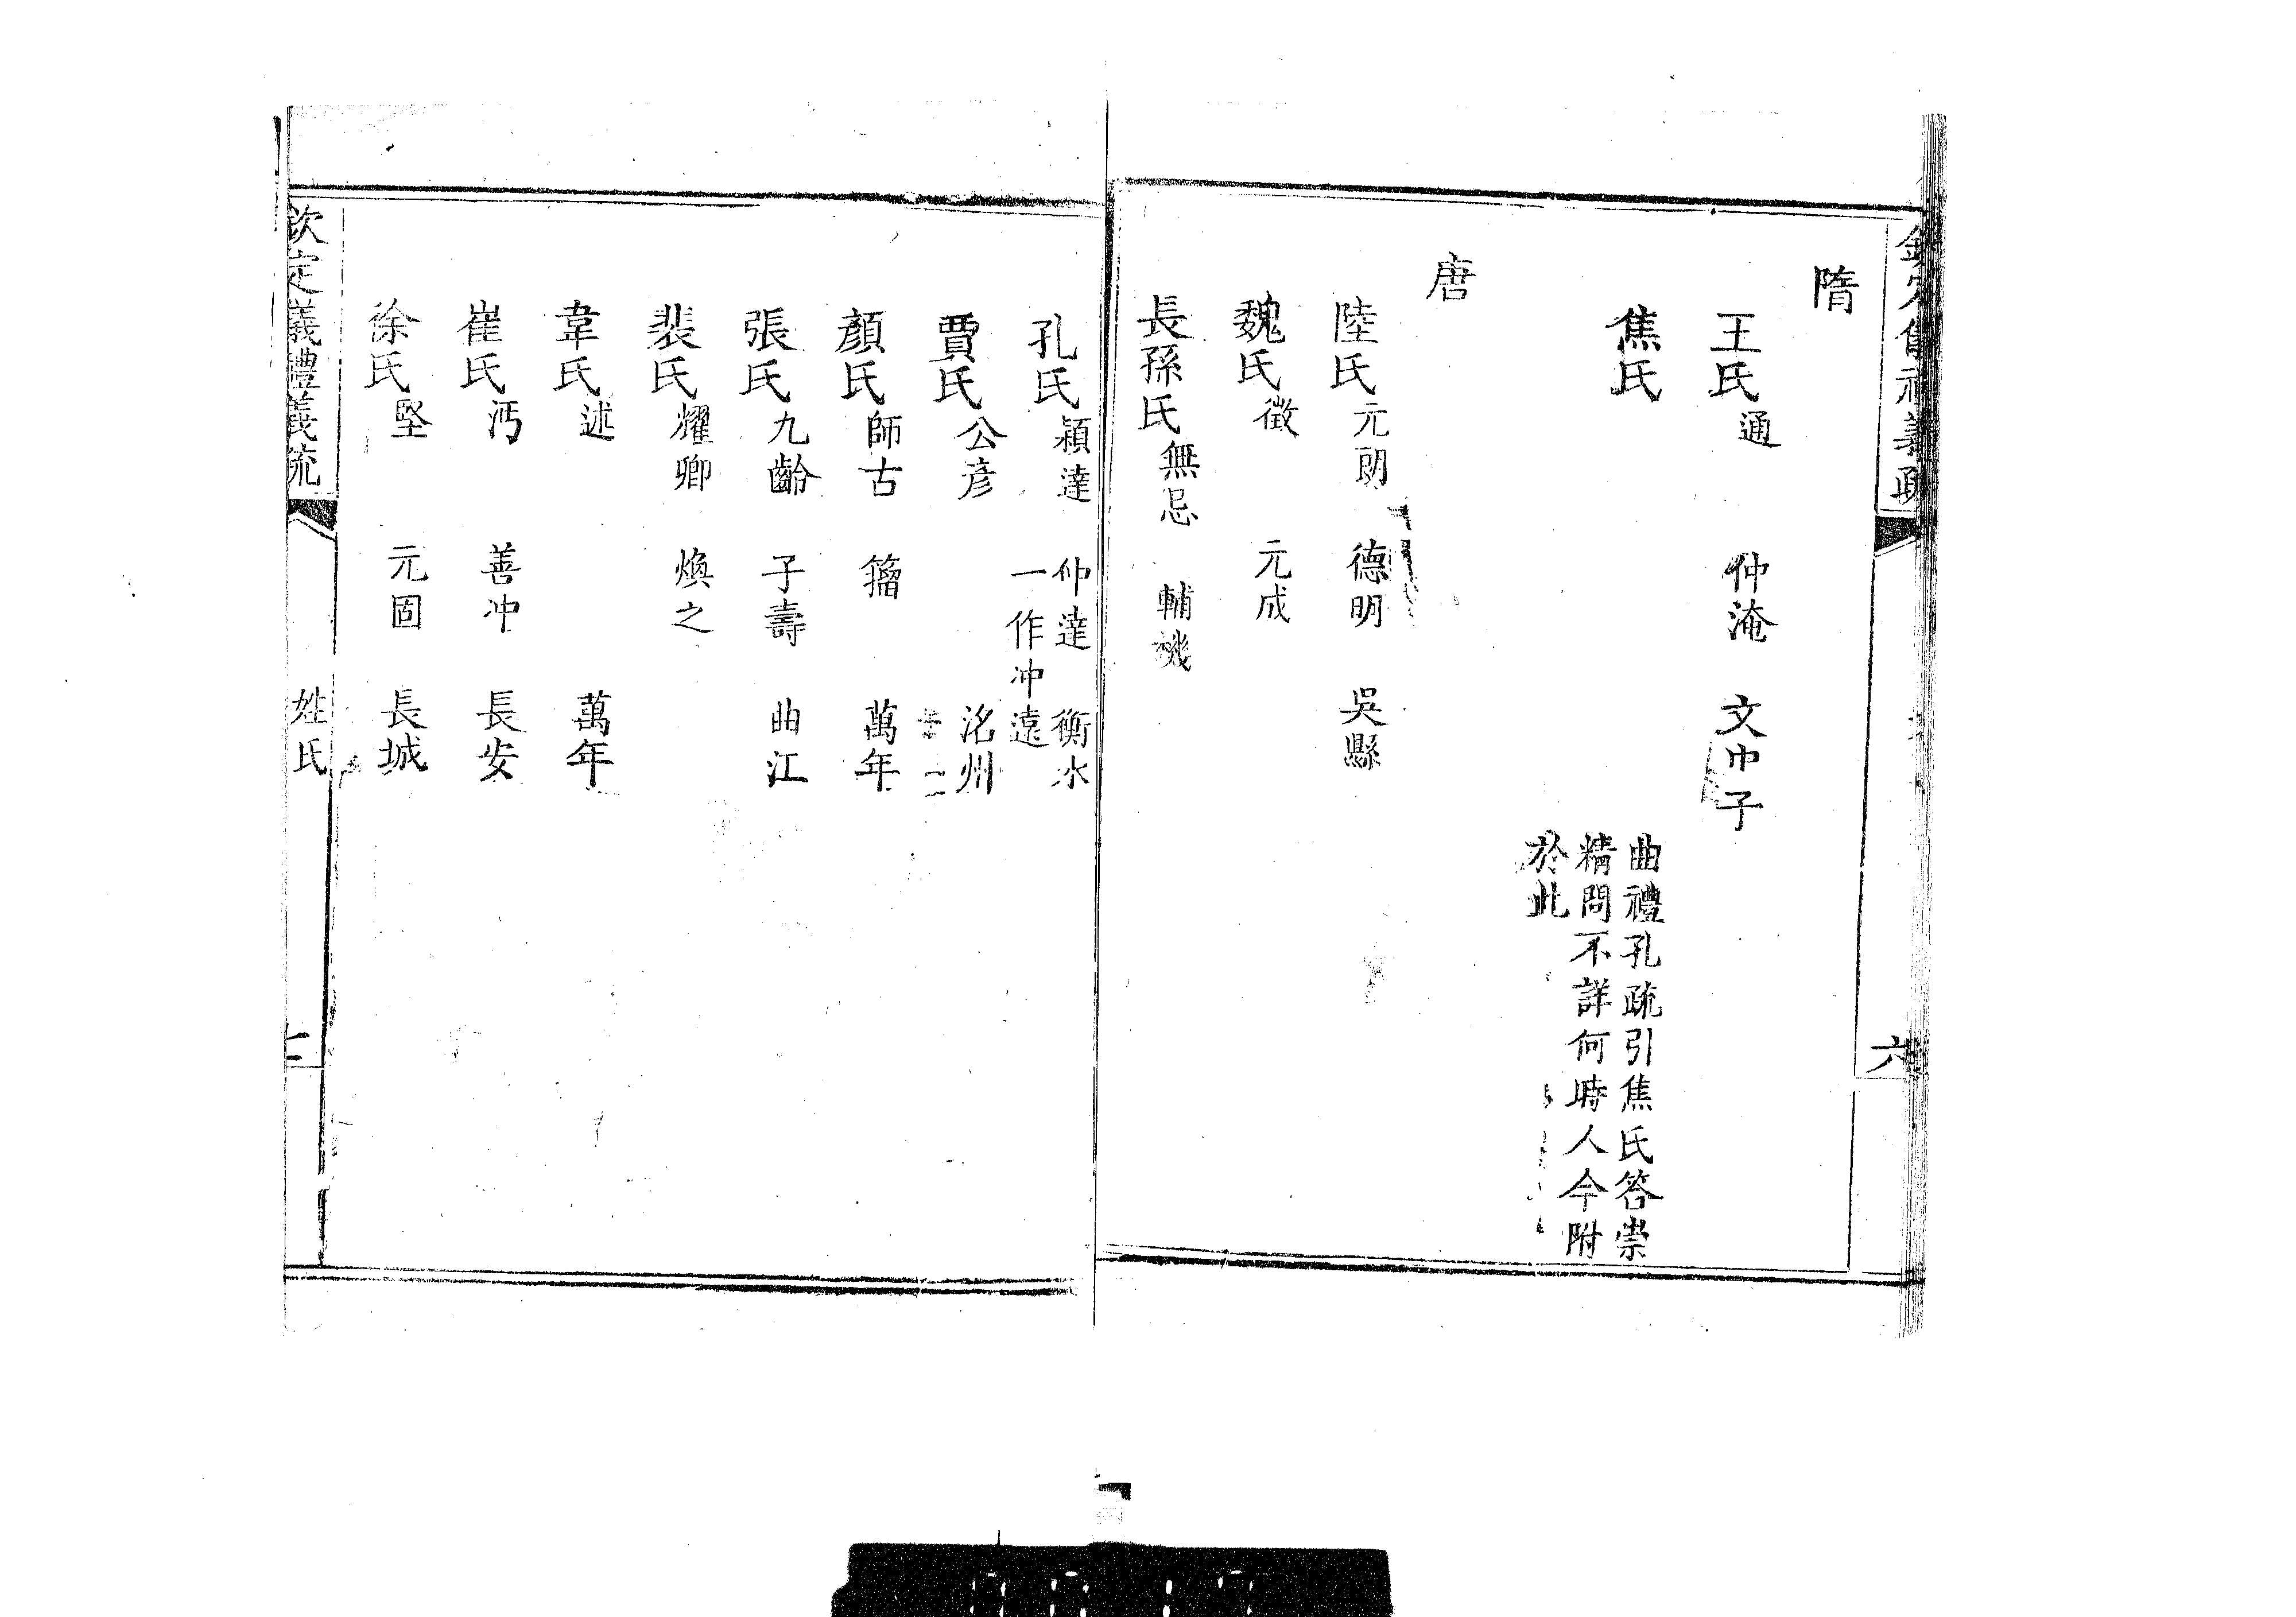 隋
王氏通 仲淹 文中子
焦氏 曲禮孔疏引焦氏答崇
精問不詳何時人今附
於此
唐
陸氏元朗 德明 吳縣
魏氏徵 元成
長孫氏無忌 輔機
孔氏穎達 仲達 衡水
一作冲遠
賈氏公彦 洺州
顏氏師古 籀 萬年
張氏九齡 子壽 曲江
裴氏耀卿 煥之
韋氏述 萬年
崔氏沔 善冲 長安
徐氏堅 元固 長城
欽定義禮義疏 姓氏
六